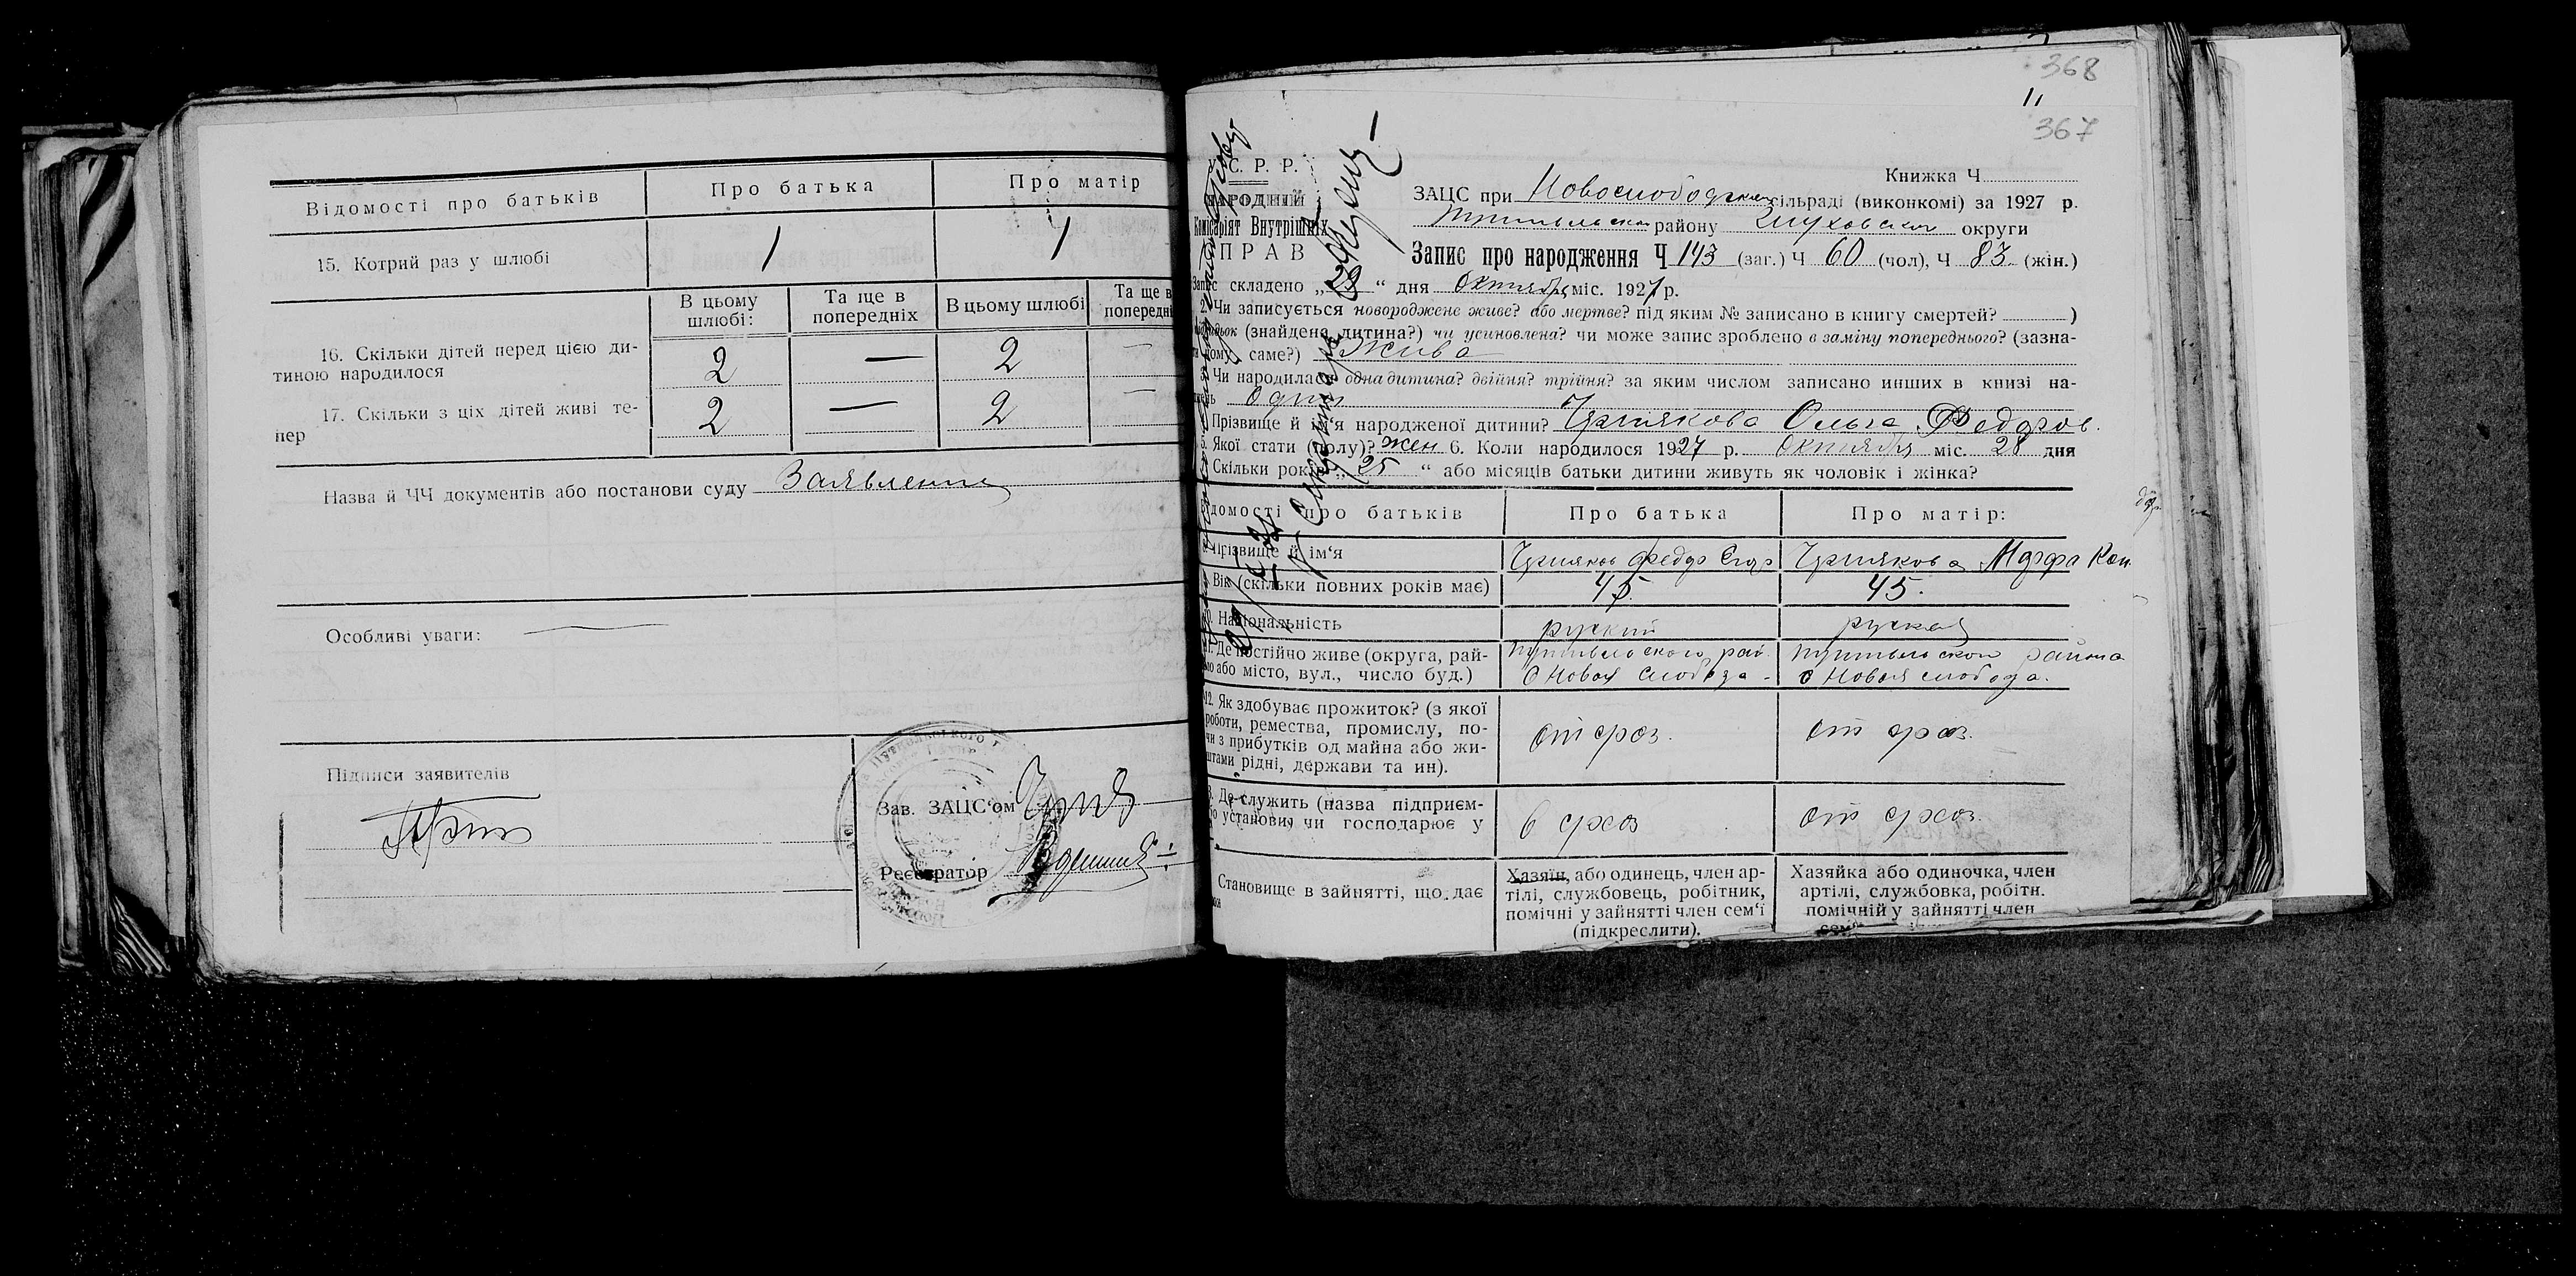 Відомості про батьків
Про батька
Про матір
15. Котрий раз у шлюбі
1
1
В цьому шлюбі:
Та ще в попередніх
В цьому шлюбі
Та ще в попередні
16. Скільки дітей перед цією ди-
тиною народилося
2
—
2
—
17. Скільки з ціх дітей живі те-
пер
2
—
2
—
Назва й ЧЧ документів або постанови суду Заявление
Особливі уваги: —
Підписи заявителів
Зав. ЗАЦС'ом
Реєстратор
368
11
367
У. С. Р. Р.
НАРОДНІЙ
Комісаріят Внутрішніх
СПРАВ
Книжка Ч
ЗАЦС при Новослободском сільраді (виконкомі) за 1927 р.
району Глуховской округи
Запис про народження Ч 143 (заг.) Ч 60 (чол), Ч 83 (жін.)
Запис складено „29“ дня Октября міс. 1927 р.
2. Чи записується новороджене живе? або мертве? під яким № записано в книгу смертей? )
(знайдена дитина?) чи усиновлена? чи може запис зроблено в заміну попереднього? (зазна-
кому саме?) Жива
Чи народилася одна дитина? двійня? трійня? за яким числом записано инших в книзі на-
Один
Прізвище й ім'я народженої дитини? Ольга Федоров.
5. Якої стати (полу)? жен 6. Коли народилося 1927 р. Октября міс. 28 дня
Скільки років „25“ або місяців батьки дитини живуть як чоловік і жінка?
Відомості про батьків
Про батька
Про матір:
Прізвище й ім'я
Федор
Марфа
Вік (скільки повних років має)
45.
45.
10. Національність
руский
руская
11. Де постійно живе (округа, рай-
або місто, вул., число буд.)
Путивльского рай.
С Новая Слобода -
Путивльского района
с Новая слобода.
12. Як здобуває прожиток? (з якої
роботи, ремества, промислу, по-
чи з прибутків од майна або жи-
штами рідні, держави та ин).
Де служить (назва підприєм-
установи чи господарює у
Становище в зайнятті, що дає
Хазяїн, або одинець, член ар-
тілі, службовець, робітник,
помічні у зайнятті член сем'ї
(підкреслити).
Хазяйка або одиночка, член
артілі, службовка, робітн.
помічній у зайнятті член